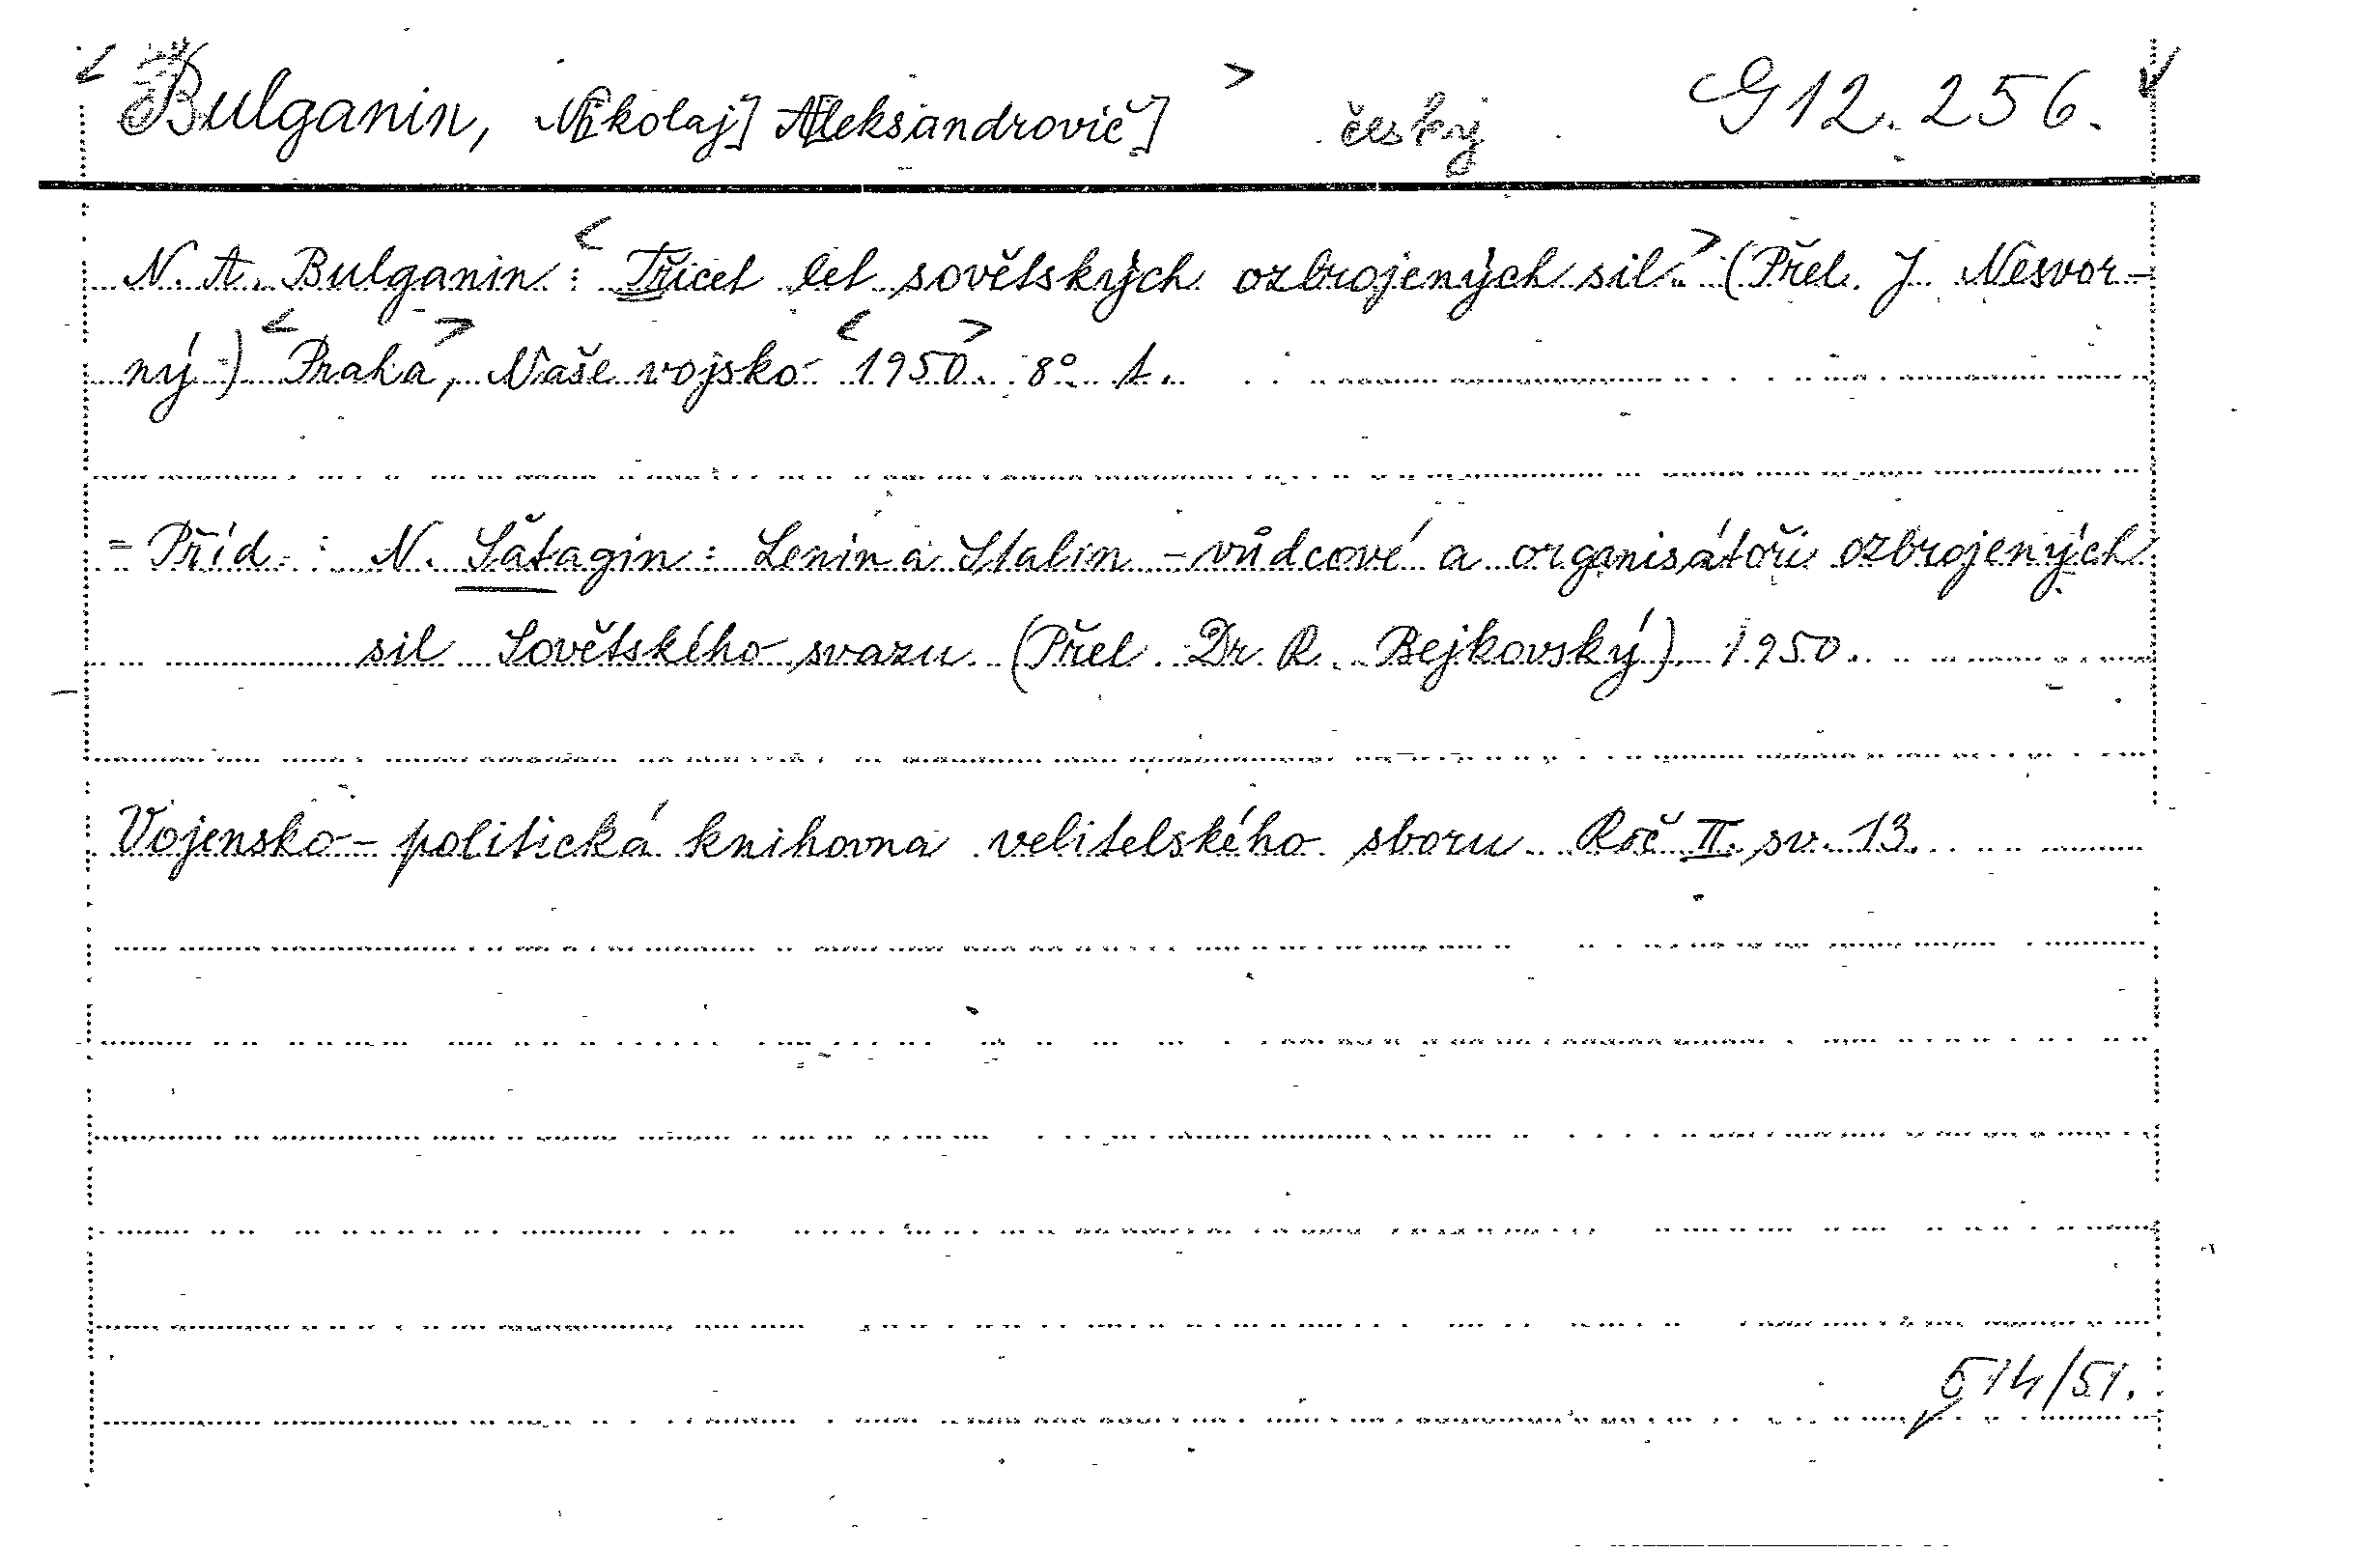 Bulganin, N[ikolaj] A[leksandrovič] česky G 12.256.
N. A. Bulganin: Třicet let sovětských ozbrojených sil. (Přel. J. Nesvor-
ný.) Praha, Naše vojsko 1950. 8° 1.
= Příd.: N. Šatagin: Lenin a Stalin - vůdcové a organisátoři ozbrojených
sil Sovětského svazu. (Přel. Dr. R. Bejkovský) 1950.
Vojensko-politická knihovna velitelského sboru. Roč II. sv. 13.
514/51.